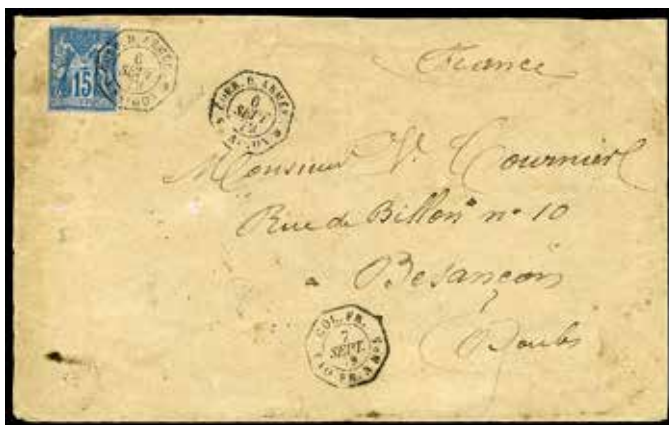 15
CORR. D. ARMÉES
6
SEPT
CORR. D. ARMÉES
6
SEPT
79
SAIGON
France
Monsieur V. Cournier
Rue de Billon n° 10
a Besançon
Doubs
COL. FR.
7
SEPT.